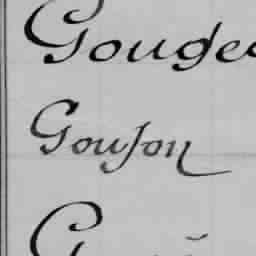 Gouge
Goujon